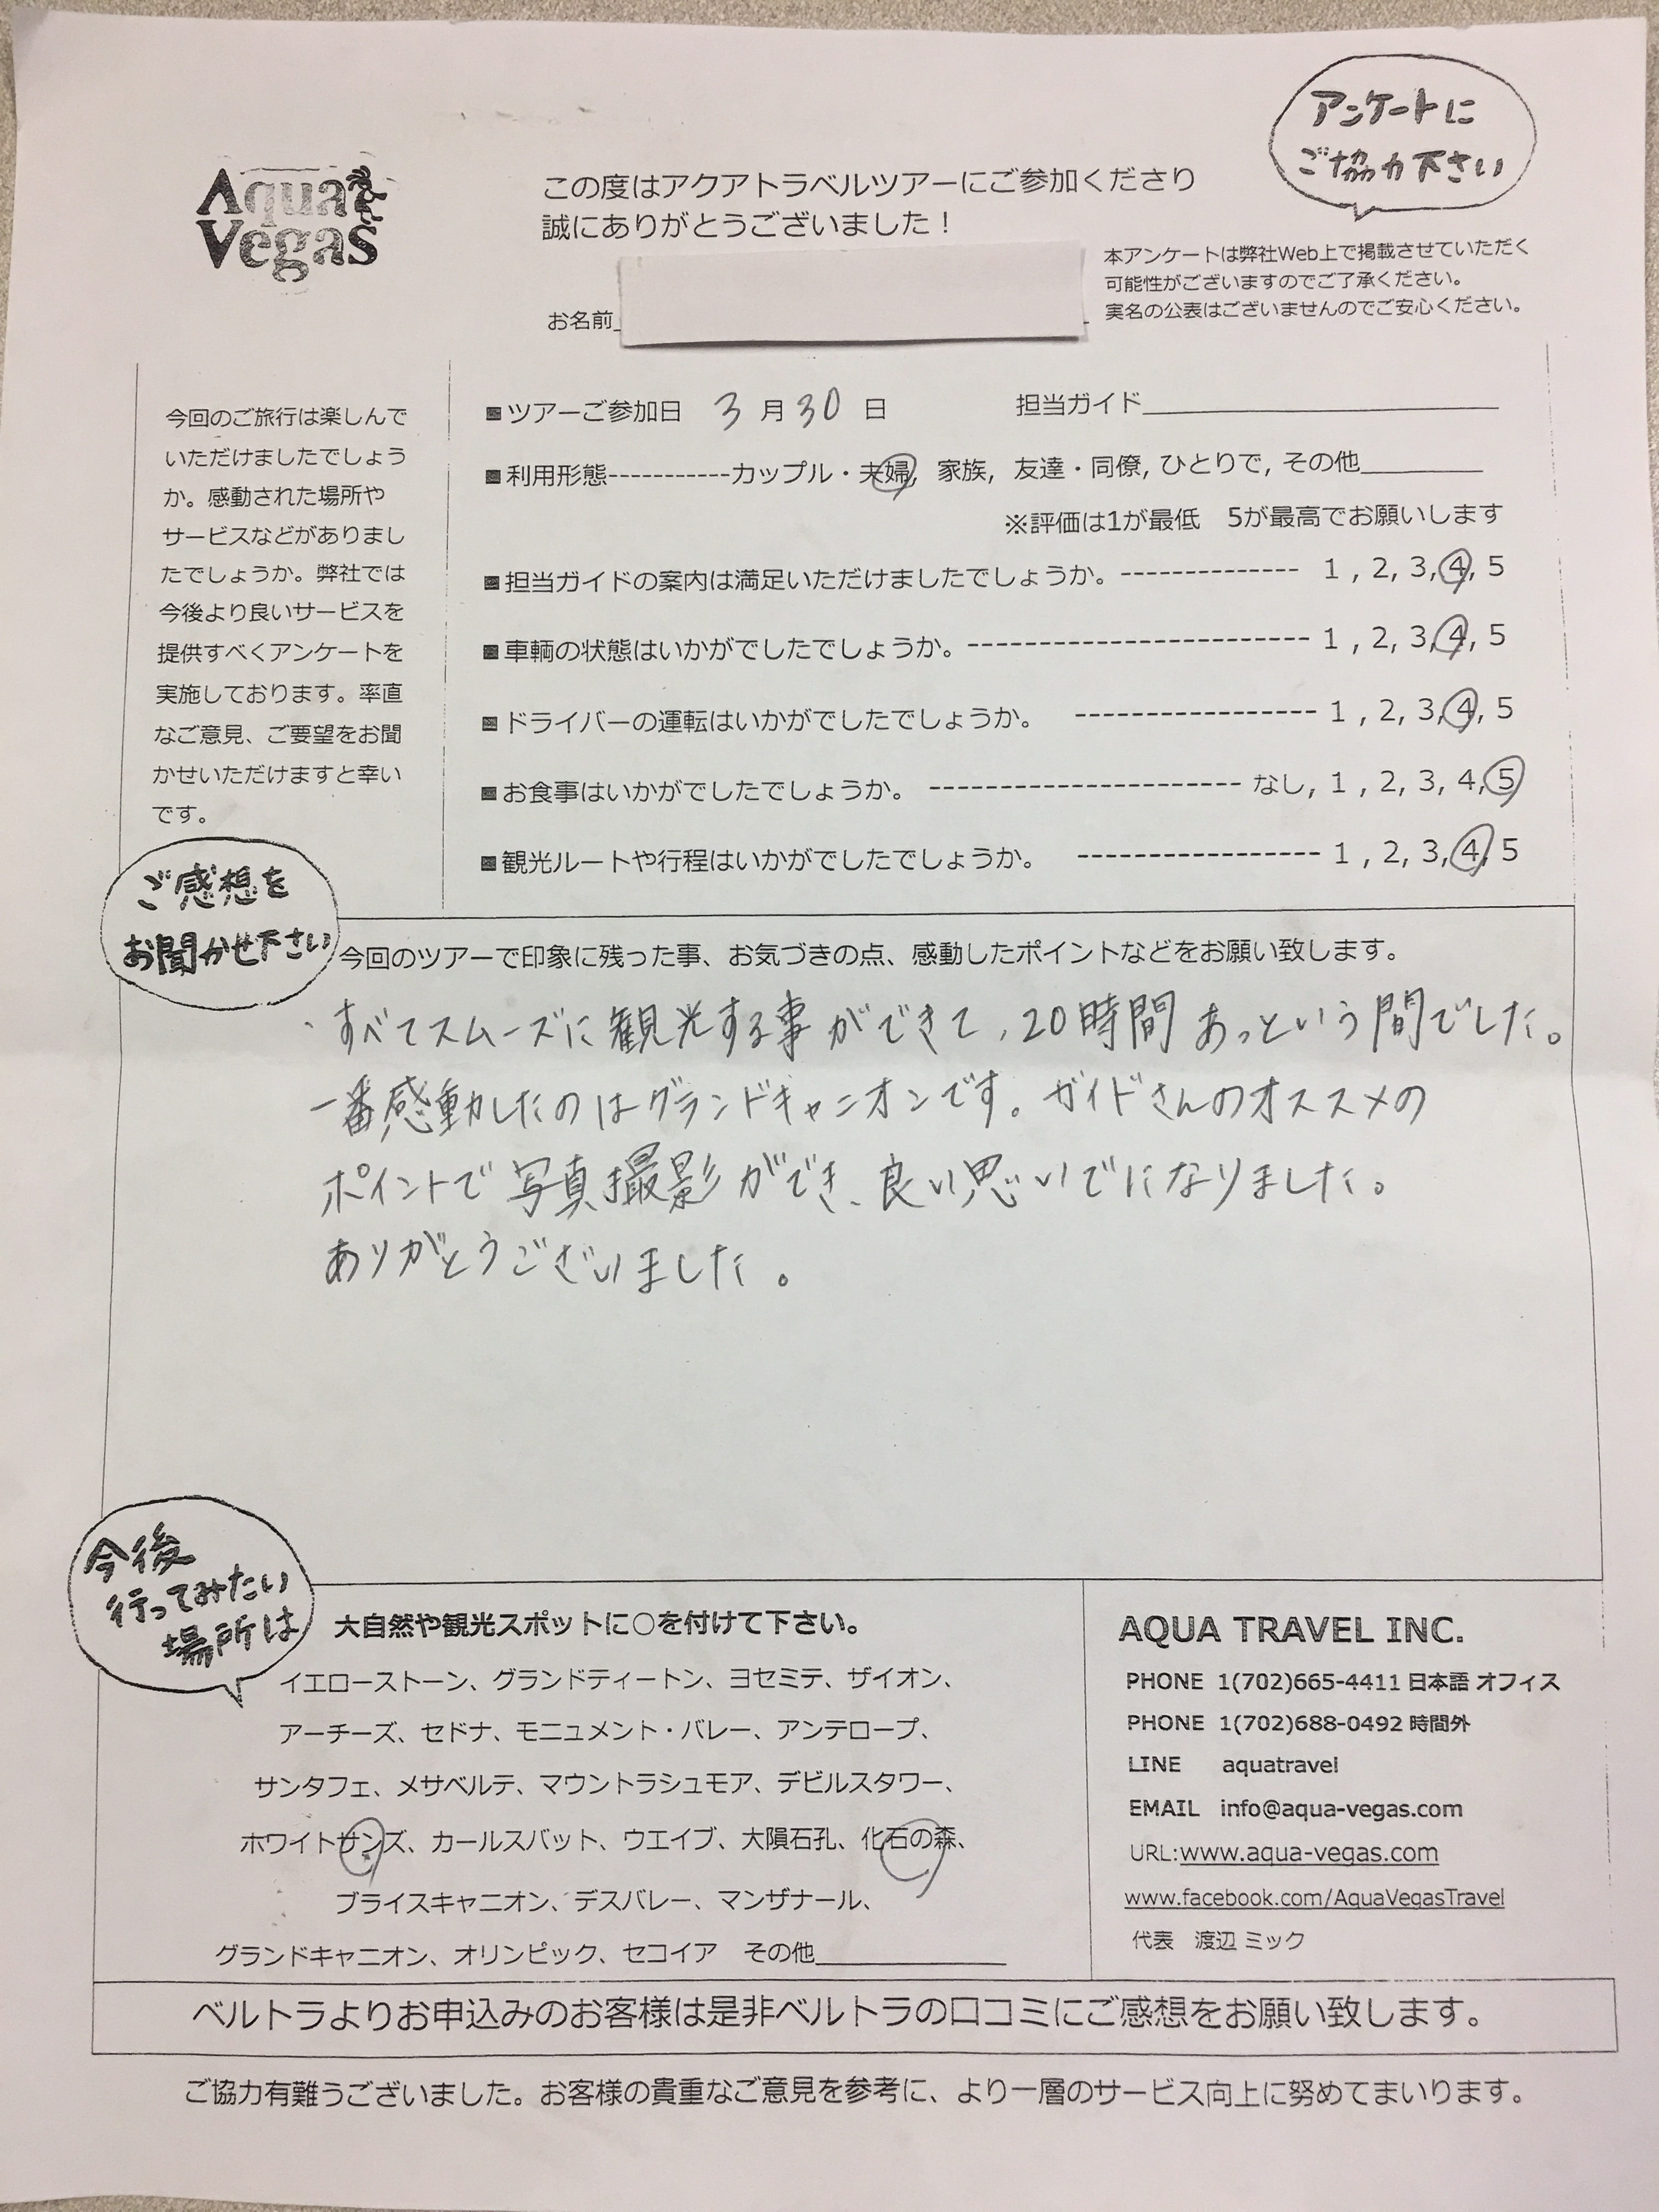 アンケートに
ご協力下さい
Aqua
Vegas
この度はアクアトラベルツアーにご参加くださり
誠にありがとうございました！
本アンケートは弊社Web上で掲載させていただく
可能性がございますのでご了承ください。
実名の公表はございませんのでご安心ください。
お名前
今回のご旅行は楽しんで
いただけましたでしょう
か。感動された場所や
サービスなどがありまし
たでしょうか。弊社では
今後より良いサービスを
提供すべくアンケートを
実施しております。率直
なご意見、ご要望をお聞
かせいただけますと幸い
です。
■ツアーご参加日 3 月 30 日 担当ガイド
■利用形態-----------カップル・夫婦, 家族, 友達・同僚, ひとりで, その他
※評価は1が最低 5が最高でお願いします
■担当ガイドの案内は満足いただけましたでしょうか。-------------- 1 , 2, 3, 4, 5
■車輌の状態はいかがでしたでしょうか。------------------------ 1 , 2, 3, 4, 5
■ドライバーの運転はいかがでしたでしょうか。 ----------------- 1 , 2, 3, 4, 5
■お食事はいかがでしたでしょうか。 ---------------------- なし, 1 , 2, 3, 4, 5
■観光ルートや行程はいかがでしたでしょうか。 ----------------- 1 , 2, 3, 4, 5
ご感想を
お聞かせ下さい
今回のツアーで印象に残った事、お気づきの点、感動したポイントなどをお願い致します。
・すべてスムーズに観光する事ができて、20時間あっという間でした。
一番感動したのはグランドキャニオンです。ガイドさんのオススメの
ポイントで写真撮影ができ、良い思いでになりました。
ありがとうございました。
今後
行ってみたい
場所は
大自然や観光スポットに○を付けて下さい。
イエローストーン、グランドティートン、ヨセミテ、ザイオン、
アーチーズ、セドナ、モニュメント・バレー、アンテロープ、
サンタフェ、メサベルテ、マウントラシュモア、デビルスタワー、
ホワイトサンズ、カールスバット、ウエイブ、大隕石孔、化石の森、
ブライスキャニオン、デスバレー、マンザナール、
グランドキャニオン、オリンピック、セコイア その他
AQUA TRAVEL INC.
PHONE 1(702)665-4411 日本語 オフィス
PHONE 1(702)688-0492 時間外
LINE aquatravel
EMAIL info@aqua-vegas.com
URL:www.aqua-vegas.com
www.facebook.com/AquaVegasTravel
代表 渡辺 ミック
ベルトラよりお申込みのお客様は是非ベルトラの口コミにご感想をお願い致します。
ご協力有難うございました。お客様の貴重なご意見を参考に、より一層のサービス向上に努めてまいります。